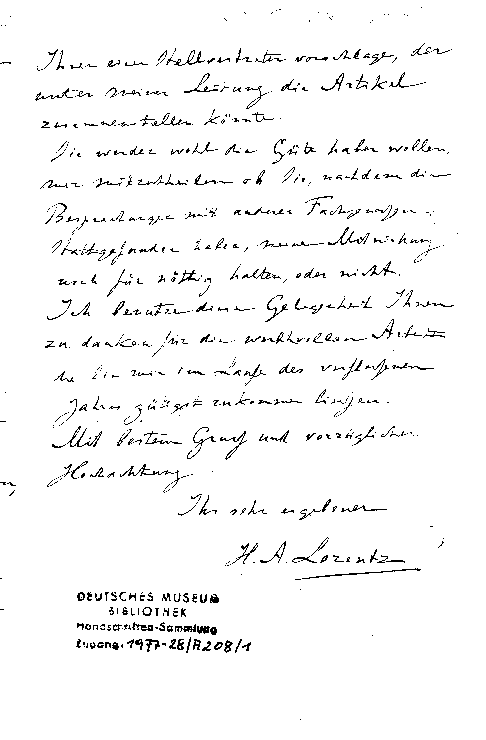 Ihnen einen Stellvertreter vorschlage, der
unter meiner Leitung die Artikel
zusammenstellen könnte.
Sie werden wohl die Güte haben wollen,
mir mitzutheilen ob Sie, nachdem die
Besprechungen mit anderen Fachgenossen
stattgefunden haben, meine Mitwirkung
noch für nöthig halten, oder nicht.
Ich benutze diese Gelegenheit Ihnen
zu danken für die werthvollen Arbeiten
die Sie mir im Laufe des verflossenen
Jahres gütigst zukommen liessen.
Mit bestem Gruss und vorzüglicher
Hochachtung
Ihr sehr ergebener
H. A. Lorentz
DEUTSCHES MUSEUM
BIBLIOTHEK
Handschriften-Sammlung
Zugang: 1977-28/A208/1